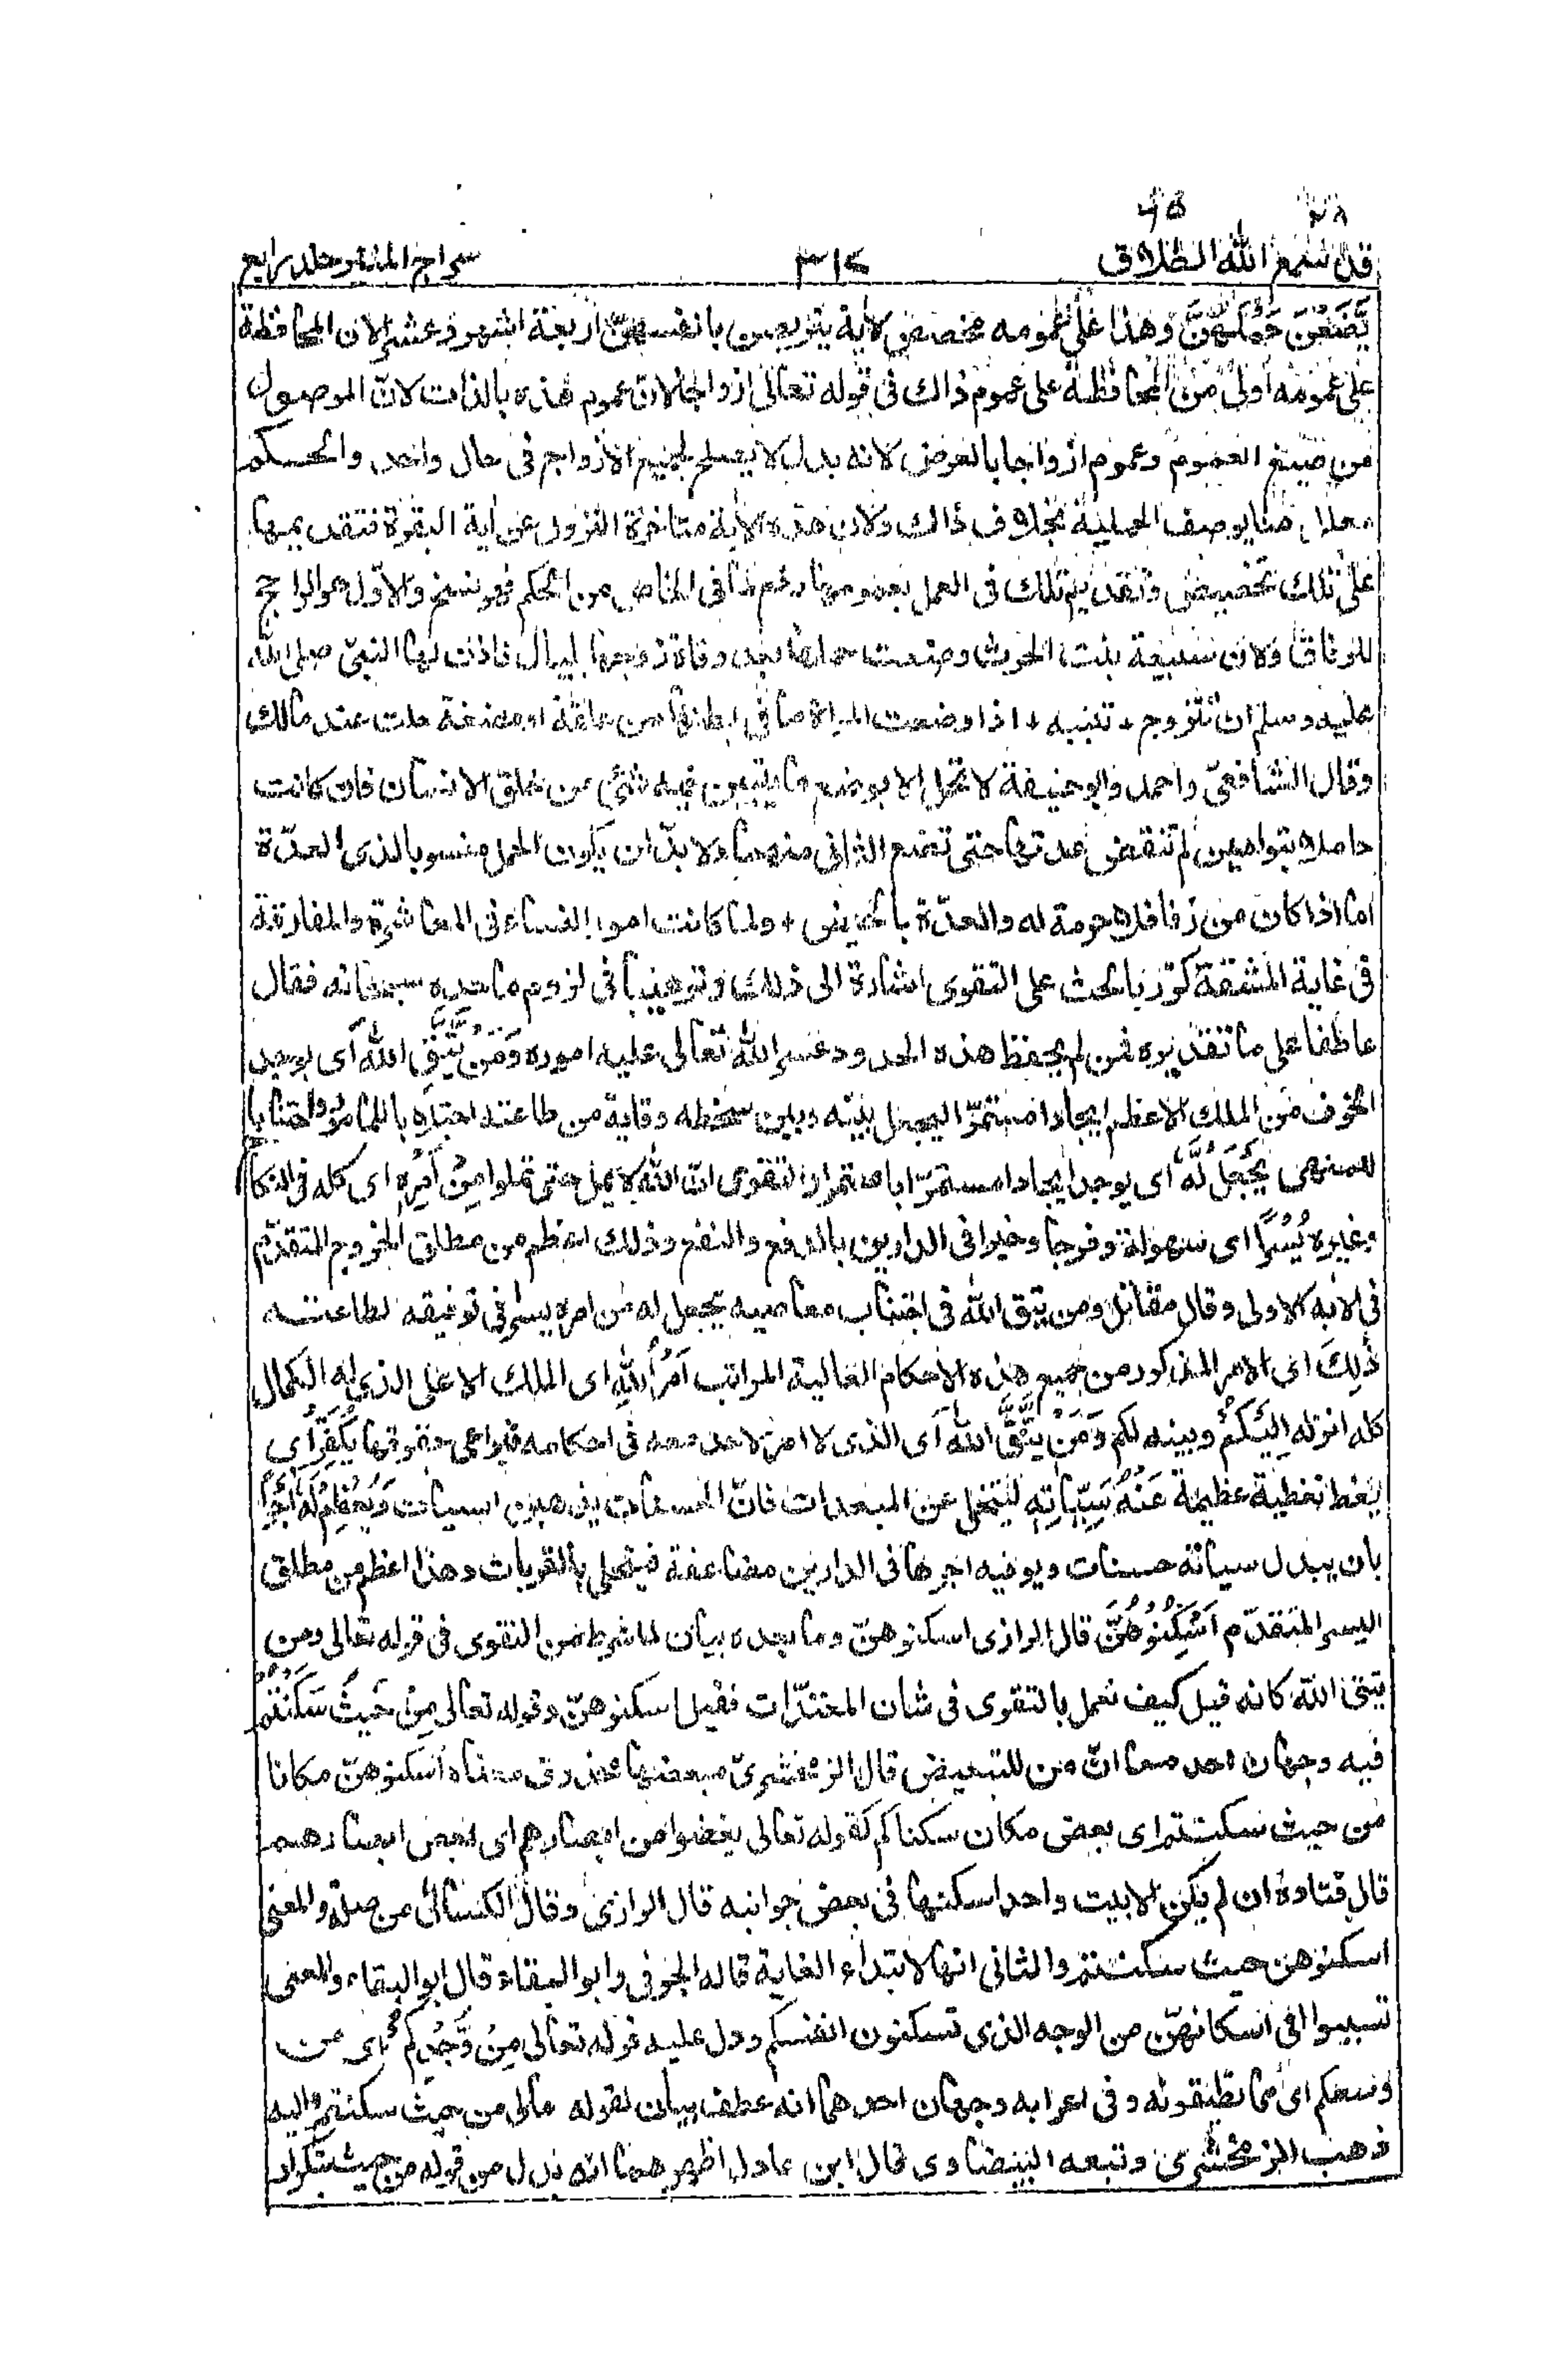 ٢٨ ٦٥
قد سمع الله الطلاق ٣١٤ سراج المنير جلد رابع
يَّضَعْنَ حَمْلَهُنَّ وهذا على عمومه مخصص لآية يتربصن بانفسهنّ اربعة اشهر وعشرا لان المحافظة
على عمومه أولى من المحافظة على عموم ذاك فى قوله تعالى ازواجا لانّ عموم هذه بالذات لانّ الموصول
من صيغ العموم وعموم ازواجا بالعرض لانه بدل لا يصلح لجميع الازواج فى حال واحد والحكم
معلل هنا بوصف الحملية بخلاف ذاك ولان هذه الآية متاخرة النزول عن آية البقرة فتقديمها
على تلك تخصيص وتقديم تلك فى العمل بعمومها رفع لما فى الخاص من الحكم فهو نسخ والاوّل هو الراجح
للوفاق ولان سبيعة بنت الحرث وضعت حملها بعد وفاة زوجها بليال فاذن لها النبىّ صلى الله
عليه وسلم ان تتزوج + تنبيه + اذا وضعت المراة ما فى بطنها من علقة او مضغة حلت عند مالك
وقال الشافعىّ واحمد وابو حنيفة لا تحل الا بوضع ما يتبين فيه شئ من خلق الانسان فان كانت
حاملا بتوامين لم تنقض عدتها حتى تضع الثانى منهما ولا بدّ ان يكون الحمل منسوبا لذى العدّة
اما اذا كان من زنا فلا حرمة له والعدّة بالحيض + ولما كانت امور النساء فى المعاشرة والمفارقة
فى غاية المشقة كوّر بالحث على التقوى اشارة الى ذلك وترهيبا فى لزوم ما حده سبحانه فقال
عاطفا على ما تقديره فمن لم يحفظ هذه الحدود عسر الله تعالى عليه اموره وَمَنْ يَّتَّقِ اللهَ اى يوجد
الخوف من الملك الاعظم ايجادا مستمرّا ليجعل بينه وبين سخطه وقاية من طاعته اجتلابا للمامور واجتنابا
للمنهى يَجْعَلْ لَّهُ اى يوجد ايجادا مستمرّا باستمرار التقوى انّ الله لا يمل حتى تملوا مِنْ اَمْرِهِ اى كله فى النكاح
وغيره يُسْرًا اى سهولة وفرجا وخيرا فى الدارين بالدفع والنفع وذلك اعظم من مطلق الخروج المتقدّم
فى الآية الاولى وقال مقاتل ومن يتق الله فى اجتناب معاصيه يجعل له من امره يسرا فى توفيقه لطاعته
ذٰلِكَ اى الامر المذكور من جميع هذه الاحكام العالية المراتب اَمْرُ اللهِ اى الملك الاعلى الذى له الكمال
كله انزله اِلَيْكُمْ وبينه لكم وَمَنْ يَّتَّقِ اللهَ اى الذى لا امر لاحد معه فى احكامه فيراعى حقوقها يُكَفِّرْ اى
يغط تغطية عظيمة عَنْهُ سَيِّاٰتِهِ ليتخلى عن المبعدات فانّ الحسنات يذهبن السيات وَيُعْظِمْ لَهُ اَجْرًا
بان يبدل سياته حسنات ويوفيه اجرها فى الدارين مضاعفة فيتحلى بالقربات وهذا اعظم من مطلق
اليسر المتقدّم اَسْكِنُوْهُنَّ قال الرازى اسكنوهنّ وما بعده بيان لما شرط من التقوى فى قوله تعالى ومن
يتق الله كانه قيل كيف نعمل بالتقوى فى شان المعتدّات فقيل اسكنوهنّ وقوله تعالى مِنْ حَيْثُ سَكَنْتُمْ
فيه وجهان احدهما انّ من للتبعيض قال الزمخشرىّ مبعضها محذوف معناه اسكنوهنّ مكانا
من حيث سكنتم اى بعض مكان سكناكم كقوله تعالى يغضوا من ابصارهم اى بعض ابصارهم
قال قتادة ان لم يكن الا بيت واحد اسكنها فى بعض جوانبه قال الرازى وقال الكسائى من صلة والمعنى
اسكنوهن حيث سكنتم والثانى انها لابتداء الغاية قاله الحوفى وابو البقاء قال ابو البقاء والمعنى
تسببوا الى اسكانهنّ من الوجه الذى تسكنون انفسكم ودل عليه قوله تعالى مِنْ وُّجْدِكُمْ اى من
وسعكم اى ما تطيقونه وفى اعرابه وجهان احدهما انه عطف بيان لقوله تعالى من حيث سكنتم واليه
ذهب الزمخشرى وتبعه البيضاوى قال ابن عادل اظهرهما انه بدل من قوله من حيث بتكرار